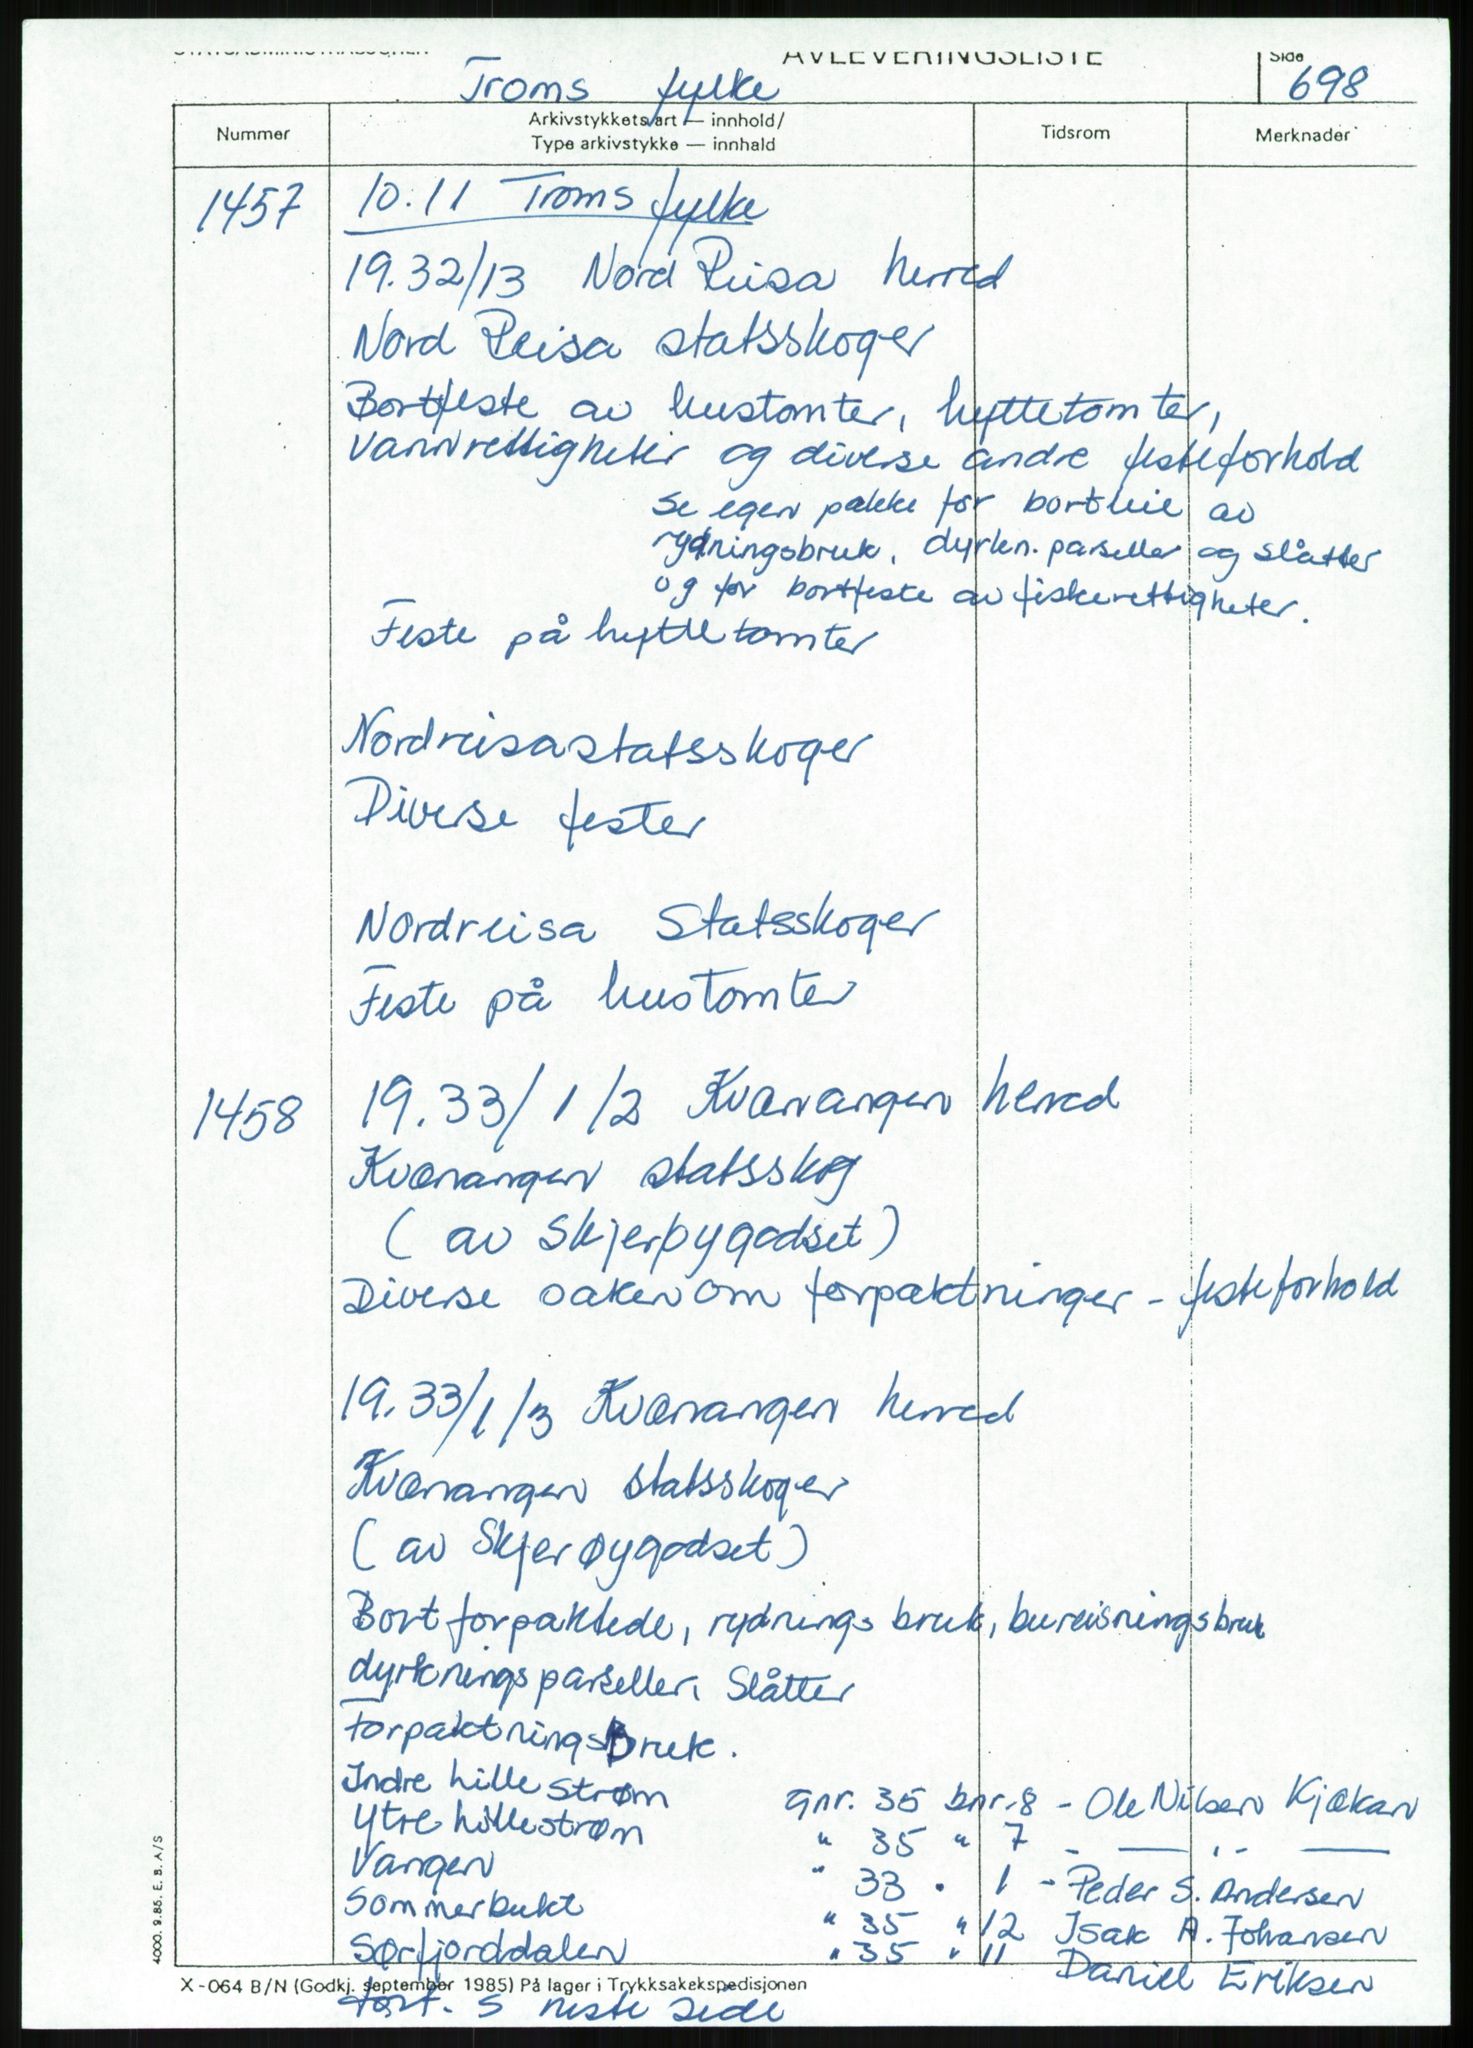 STATSADMINISTRASJONEN AVLEVERINGSLISTE Side
Troms fylke 698
Nummer Arkivstykkets art — innhold/ Tidsrom Merknader
Type arkivstykke — innhald
1457 10.11 Troms fylke
19.32/13 Nord Reisa herred
Nord Reisa statsskoger
Bortfeste av hustomter, hyttetomter,
vannrettigheter og diverse andre festeforhold
Se egen pakke for bortleie av
rydningsbruk, dyrkn. parseller og slåtter
og for bortfeste av fiskerettigheter.
Feste på hyttetomter
Nordreisa statsskoger
Diverse fester
Nordreisa Statsskoger
Feste på hustomter
1458 19.33/1/2 Kvænangen herred
Kvænangen statsskog
(av Skjerøygodset)
Diverse saker om forpaktninger - festeforhold
19.33/1/3 Kvænangen herred
Kvænangen statsskoger
(av Skjerøygodset)
Bortforpaktede, rydningsbruk, bureisningsbruk
dyrkningsparseller, Slåtter
Forpaktningsbruk.
Indre hillestrøm gnr. 35 bnr. 8 - Ole Nilsen Kjækan
Ytre hillestrøm " 35 " 7 - — " —
Vangen " 33 " 1 - Peder S. Andersen
Sommerbukt " 35 " 12 Isak A. Johansen
Sørfjorddalen " 35 " 11 Daniel Eriksen
X-064 B/N (Godkj. september 1985) På lager i Trykksakekspedisjonen
fort. s neste side
4000. 9.85. E. B. A/S